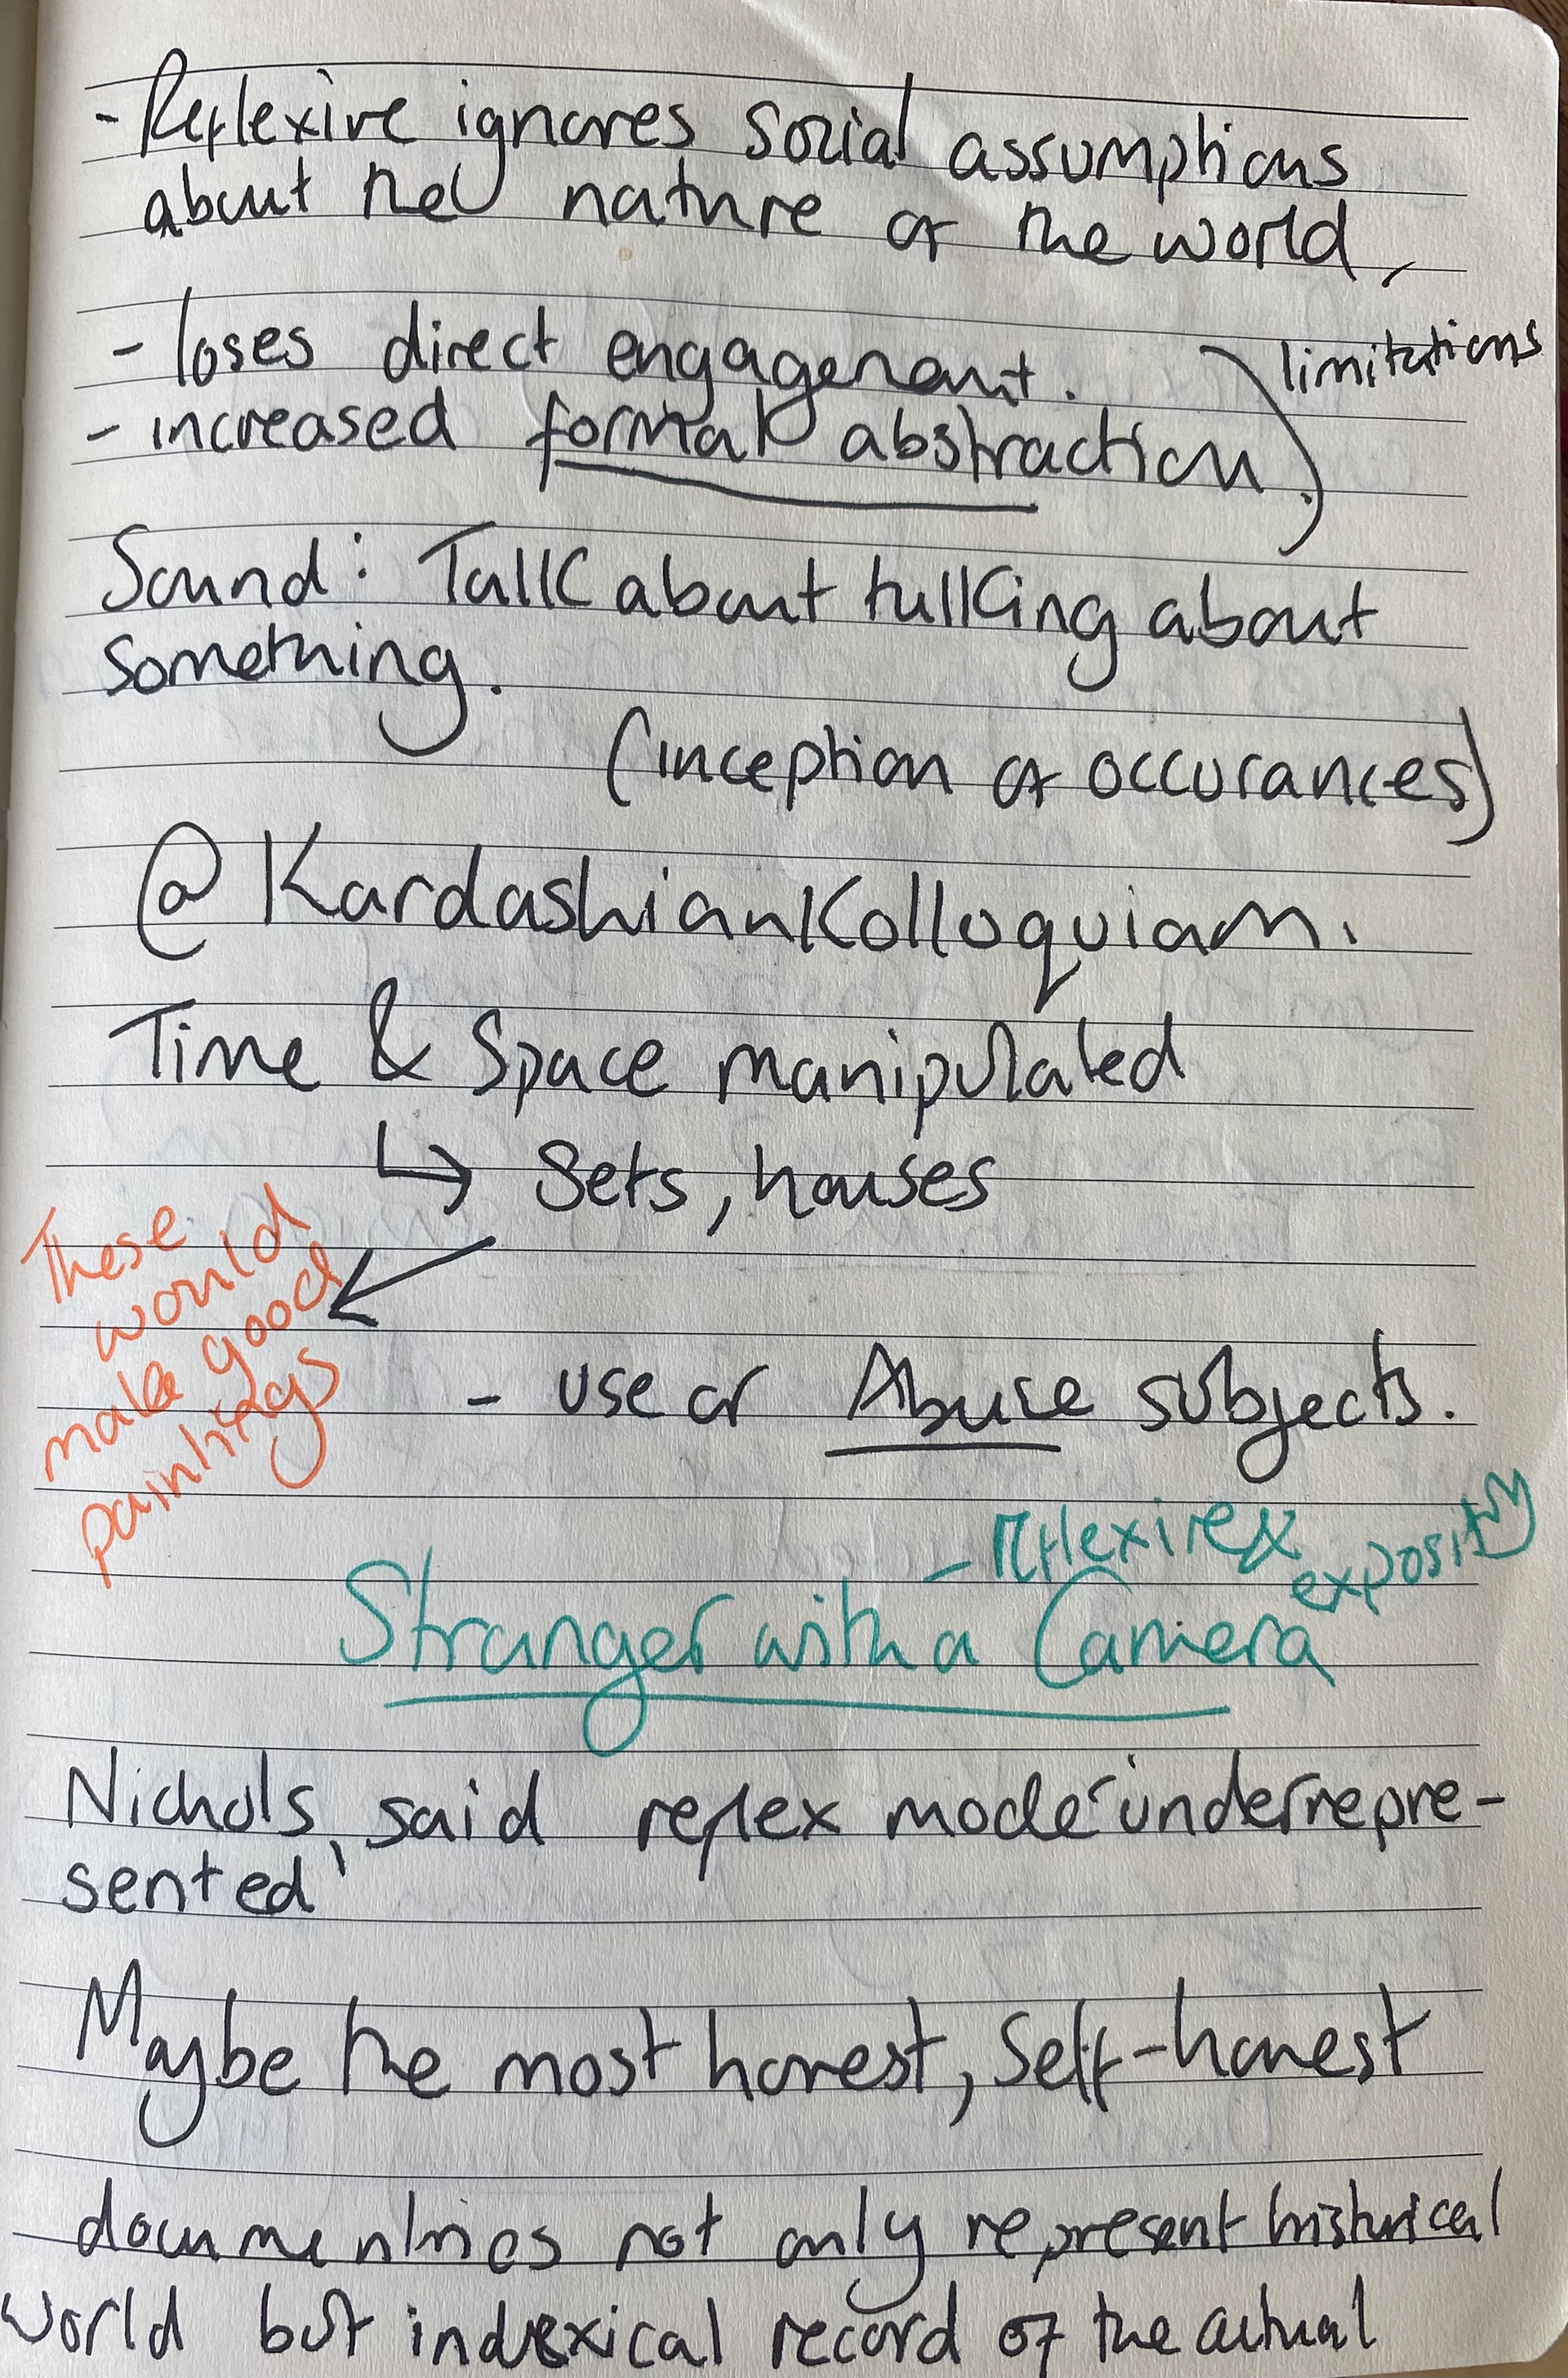 - Reflexive ignores social assumptions
about the nature of the world,
- loses direct engagement.
limitations
- increased formal abstraction.
Sound: Talk about talking about
something.
(inception of occurances)
@KardashianKolloquiam.
Time & Space manipulated
↳ Sets, houses
These
would
make good
paintings
- use or Abuse subjects.
- reflexive & expository
Stranger with a Camera
Nichols, said reflex mode 'underrepre-
sented'
Maybe the most honest, Self-honest
documentries not only represent historical
world but indexical record of the actual